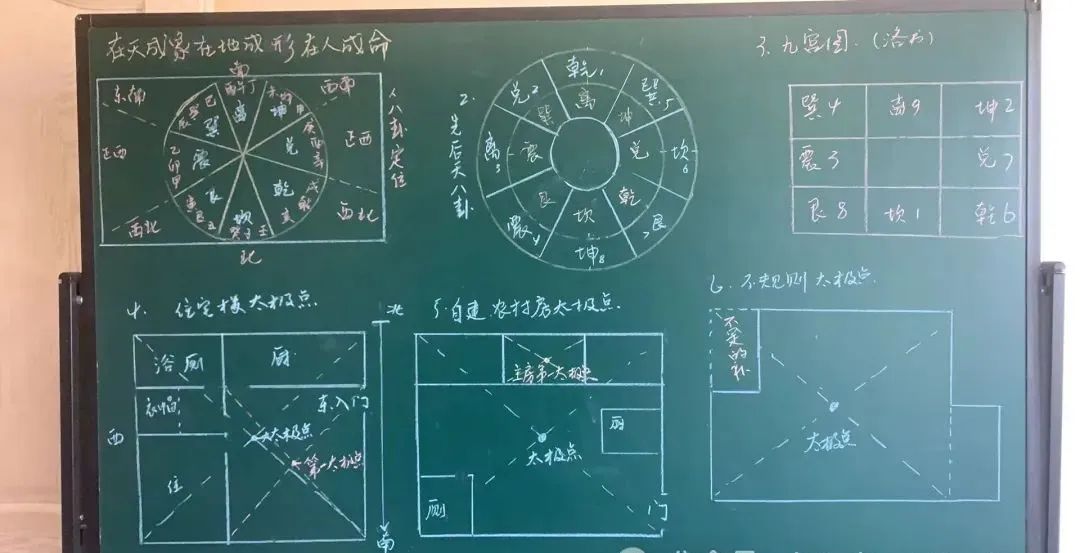 在天成象在地成形在人成命
南
东南
丙午丁
西南
巳
巽
离
坤
正西
乙卯甲
震
兑
庚酉辛
正西
艮
坎
乾
戌
亥
西北
西北
北
1、八卦定位
2、先后天八卦
乾1
兑2
巽5
离
巽
坤
离3
震
兑
坎6
艮
坎
乾
震4
艮7
坤8
3、九宫图.(洛书)
巽4 离9 坤2
震3 兑7
艮8 坎1 乾6
4、住宅楼太极点
北
浴厕
厨
衣帽间
东入门
西
太极点
第一太极点
住
南
5、自建农村房太极点
主房第一太极点
厨
太极点
厕
门
6、不规则太极点
不足的补
太极点